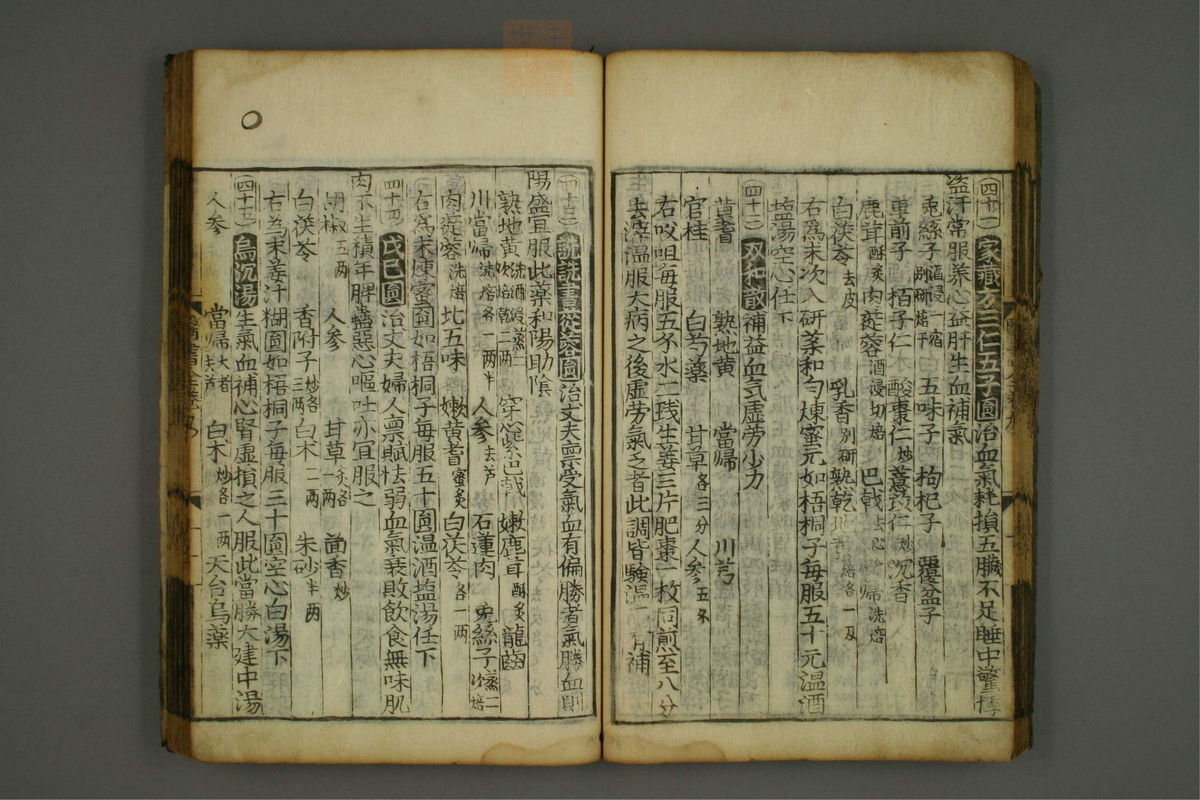 (四十一)家藏方三仁五子圓治血氣耗損五臟不足睡中驚悸
盗汗常服养心益肝生血補氣
兎絲子酒浸一宿 五味子 枸杞子 覆盆子
車前子 栢子仁 酸棗仁炒 薏苡仁炒 沉香
鹿茸酥炙 肉蓯蓉酒浸切焙 巴戟去心 當歸洗焙
白茯苓去皮 乳香別研 熟乾地黄焙各一両
右爲末次入研薬和勻煉蜜元如梧桐子每服五十元温酒
塩湯空心任下
(四十二)双和散補益血気虚劳少力
黄耆 熟地黄 當歸 川芎
官桂 白芍藥 甘草各三分 人參五分
右㕮咀每服五分水二盞生姜三片肥棗一枚同煎至八分
去滓温服大病之後虚劳氣乏者此調皆驗温而有補
(四十三)究原書蓯蓉圓治丈夫禀受氣血有偏勝者氣勝血則
陽盛宜服此藥和陽助陰
熟地黄洗酒浸蒸二次焙乾二両 穿心紫巴戟 嫩鹿茸酥炙 龍齒
川當歸洗焙各一両半 人參去芦 石蓮肉 兎絲子
肉蓯蓉洗焙 北五味 嫩黄耆蜜炙 白茯苓各一両
右爲末煉蜜圓如梧桐子每服五十圓温酒塩湯任下
(四十四)戊巳圓治丈夫婦人禀賦怯弱血氣衰敗飲食無味肌
肉不生積年脾蠱惡心嘔吐亦宜服之
胡椒五両 人參 甘草炙各一両 茴香炒
白茯苓 香附子炒各三両 白朮二両 朱砂半両
右爲末姜汁糊圓如梧桐子每服三十圓空心白湯下
(四十五)烏沉湯生氣血補心腎虚損之人服此當勝大建中湯
人參 當歸大者去芦 白朮炒各一両 天台烏藥